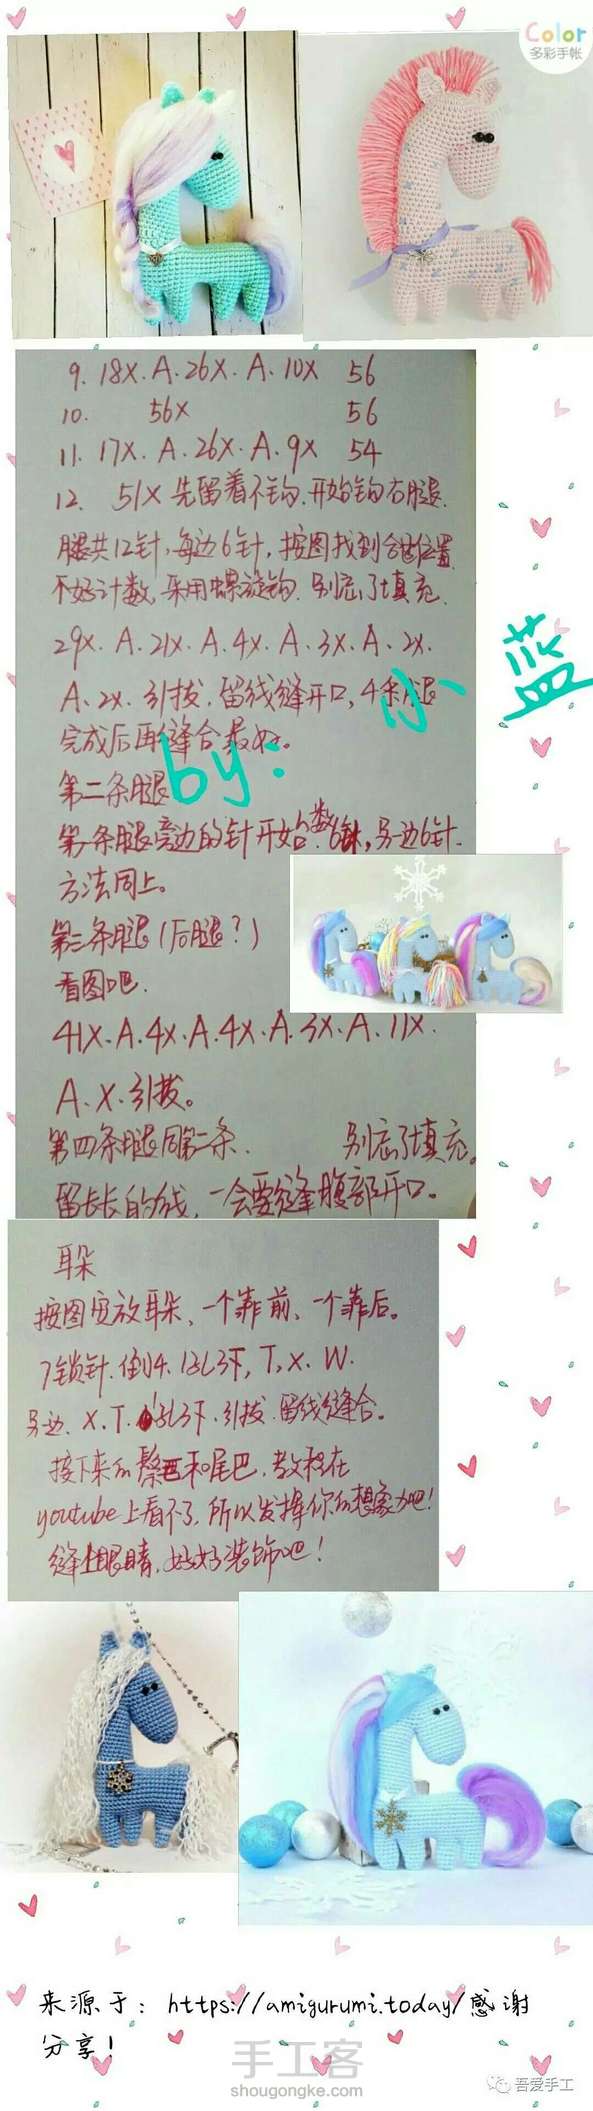 Color
多彩手帐
9. 18X. A. 26X. A. 10X 56
10. 56X 56
11. 17X. A. 26X. A. 9X 54
12. 51X 先留着不钩. 开始钩右腿.
腿共12针, 每边6针, 按图找到合适位置.
不好计数, 采用螺旋钩. 别忘了填充.
29X. A. 21X. A. 4X. A. 3X. A. 2X.
A. 2X. 引拔. 留线缝开口, 4条腿
完成后再缝合最好。
小蓝
by:
第二条腿
第一条腿旁边的针开始数6针, 另一边6针.
方法同上。
第三条腿(后腿?)
看图吧.
41X. A. 4X. A. 4X. A. 3X. A. 11X.
A. X. 引拔。
第四条腿同第二条. 别忘了填充。
留长长的线, 一会要缝腹部开口。
耳朵
按图安放耳朵、一个靠前、一个靠后。
7锁针. 倒4. 1长3下, T, X. W.
另边. X. T. 1长3下. 引拔. 留线缝合。
接下来的鬃毛和尾巴. 教程在
youtube上看不了, 所以发挥你的想象力吧!
缝上眼睛, 好好装饰吧!
来源于: https://amigurumi.today/感谢
分享!
手工客
shougongke.com
吾爱手工